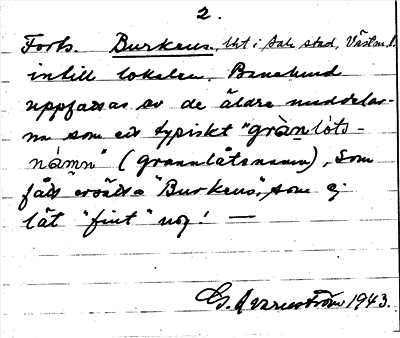 2.
Forts. Burkens, tät i Sala stad, Västm. l.
intill lokalen. Banelund
uppfattas av de äldre meddelar-
na som ett typiskt "gràn lòts-
nàmn" (grannlåtsnamn), som
fått ersätta "Burkens", som ej
lät "fint" nog! —
G. Avarström 1943.